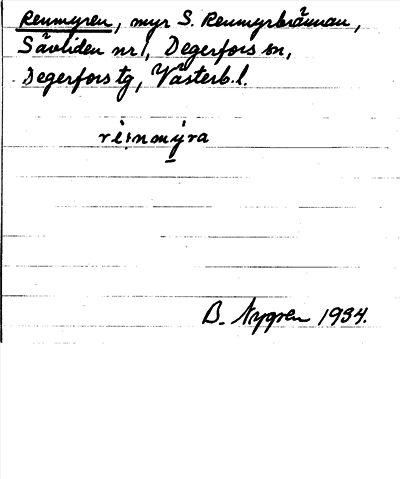 Renmyren, myr S. Renmyrbrännan,
Sävliden nr 1, Degerfors sn,
Degerfors tg, Västerb. l.
re:nmyra
B. Nygren 1934.